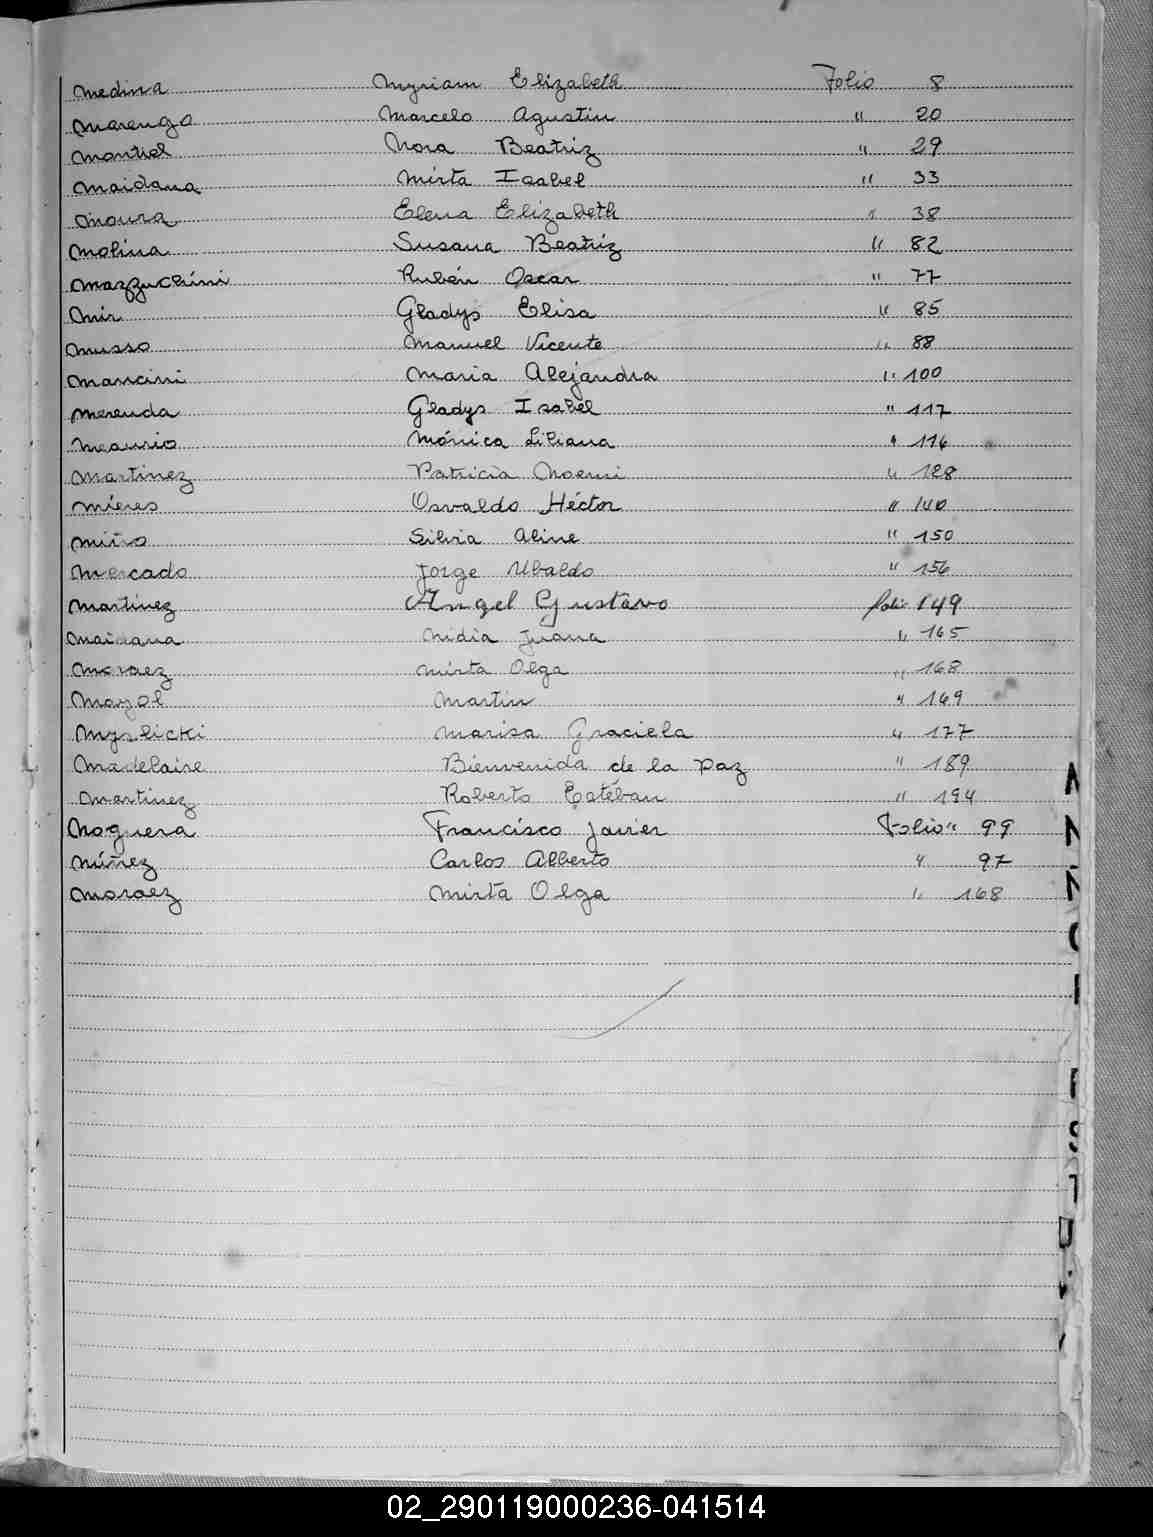 Medina Myriam Elizabeth Folio 8
Marengo Marcelo Agustin " 20
Montiel Nora Beatriz " 29
Maidana Mirta Isabel " 33
Moura Elena Elizabeth " 38
Molina Susana Beatriz " 82
Mazzuchini Rubén Oscar " 77
Mir Gladys Elisa " 85
Musso Manuel Vicente " 88
Mancini Maria Alejandra " 100
Merenda Gladys Isabel " 117
Meaurio Mónica Liliana " 116
Martinez Patricia Noemi " 128
Mieres Osvaldo Héctor " 140
Miño Silvia Aline " 150
Mercado Jorge Ubaldo " 156
Martínez Angel Gustavo folio 149
Maidana Nidia Juana " 165
Moraez Mirta Olga " 168
Mayol Martin " 169
Myslicki Marisa Graciela " 177
Madelaire Bienvenida de la Paz " 189
Martinez Roberto Estéban " 194
Noguera Francisco Javier Folio " 99
Núñez Carlos Alberto " 97
Moraez Mirta Olga " 168
02_290119000236-041514